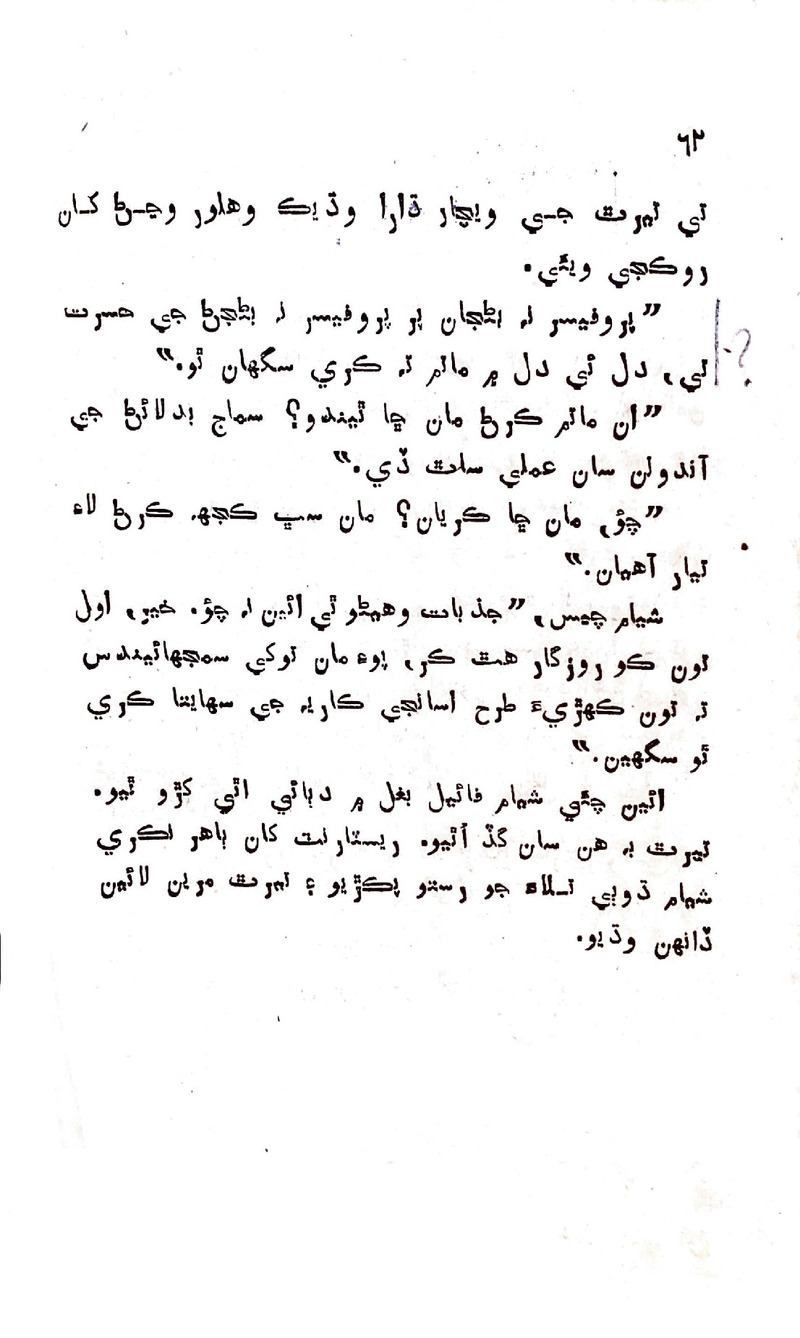 ٦٢
تي تيرٿ جي ويچار ڌارا وڌيڪ وهلور وڃڻ کان
روڪجي ويئي.
”پروفيسر نہ بڻجان پر پروفيسر نہ بڻجڻ جي حسرت
تي، دل ئي دل ۾ ماتم تہ ڪري سگهان ٿو.“
”ان ماتم ڪرڻ مان ڇا ٿيندو؟ سماج بدلائڻ جي
آندولن سان عملي ساٿ ڏي.“
”چؤ، مان ڇا ڪريان؟ مان سڀ ڪجهہ ڪرڻ لاءِ
تيار آهيان.“
شيام چيس، ”جذبات وهيڻو ٿي ائين نہ چؤ. خير، اول
تون ڪو روزگار هٿ ڪر، پوءِ مان توکي سمجهائيندس
تہ تون ڪهڙيءَ طرح اسانجي ڪاريہ جي سهايتا ڪري
ٿو سگهين.“
ائين چئي شيام فائيل بغل ۾ دٻائي اٿي کڙو ٿيو.
تيرٿ بہ هن سان گڏ اُٿيو. ريسٽارنٽ کان ٻاهر نڪري
شيام ڌوٻي تلاءَ جو رستو پڪڙيو ۽ تيرٿ مرين لائين
ڏانهن وڌيو.
?